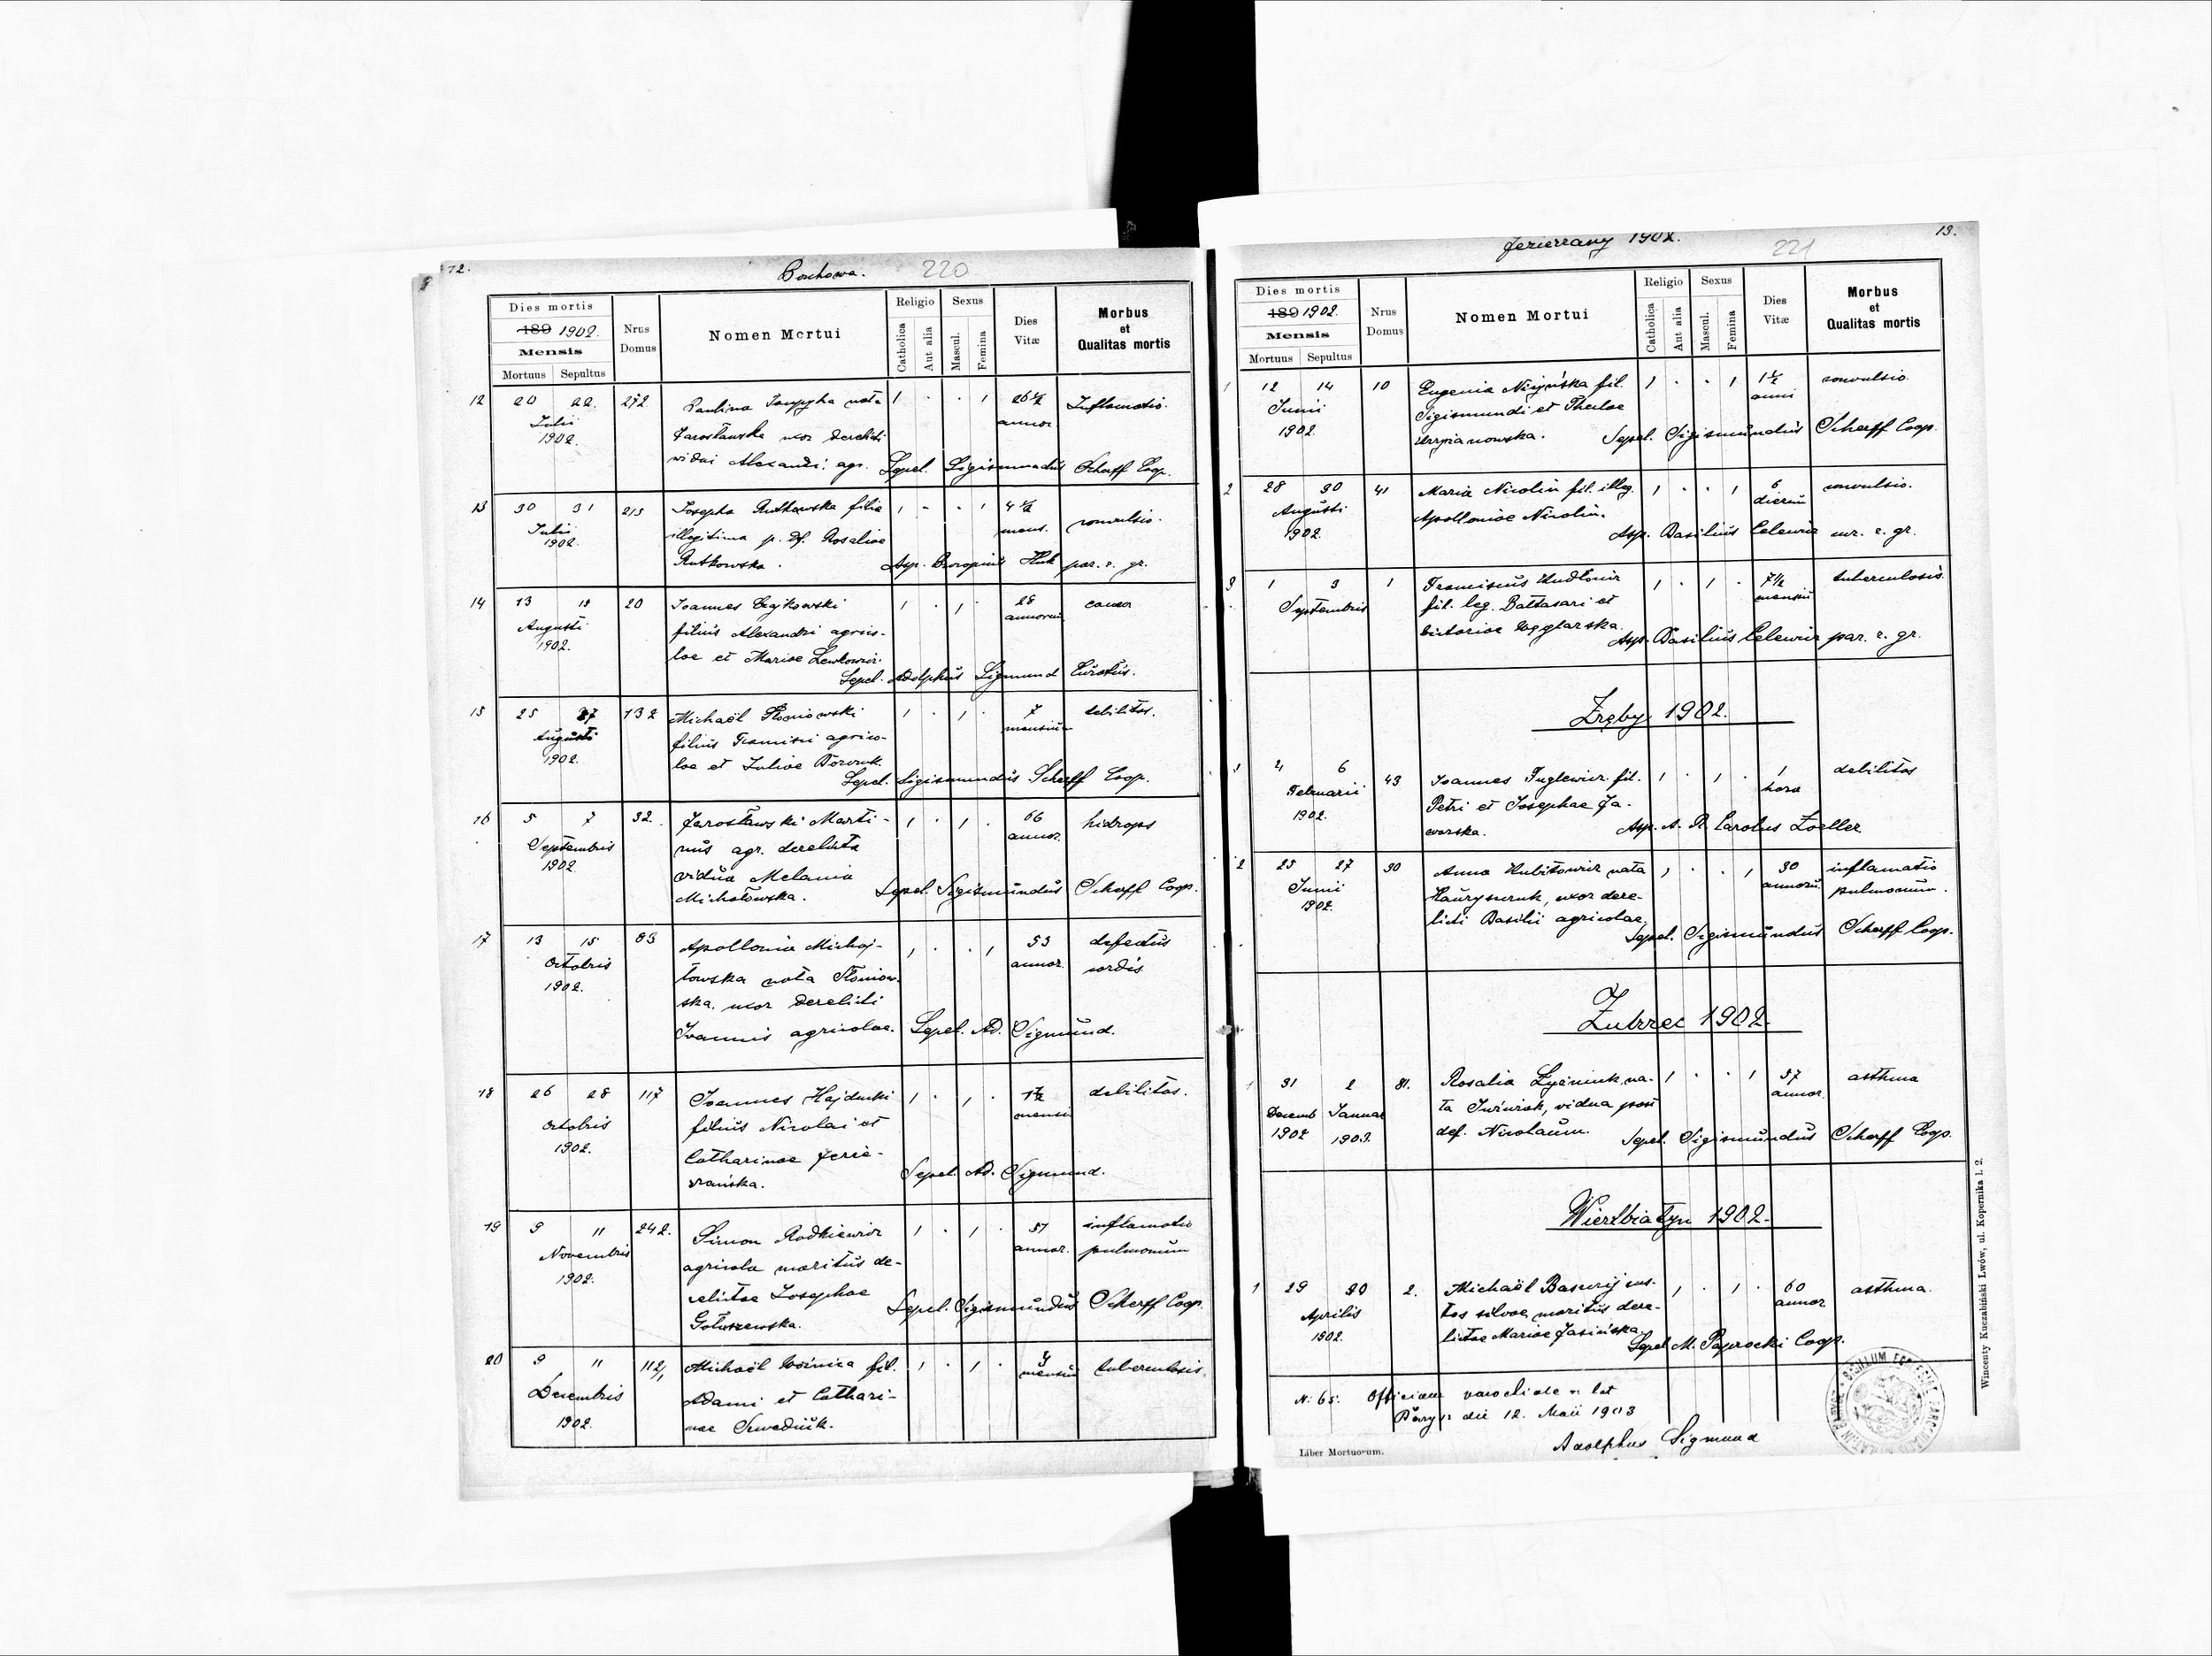 12.
220
Dies mortis
189 1902.
Mensis
Mortuus Sepultus
Nrus Domus
Nomen Mortui
Religio
Catholica
Aut alia
Sexus
Mascul.
Femina
Dies Vitæ
Morbus et Qualitas mortis
12 20 22. 272 Paulina nata 1 · · 1 26 1/2 Inflamatio.
Julii annor
1902. Jarosławska uxor derelicti
vidui Alexandri agr. Sepel. Sigismundus Scherff Coop.
13 30 31 213 Josepha Rutkowska filia 1 - · 1 4 1/2 convulsio.
Julii illegitima p. df. Rosaliae mens.
1902. Rutkowska. Asp. Huk par. r. gr.
14 13 20 Joannes filius Alexandri agrico- 1 · 1 · 28 annorum
Augusti
1902. lae et Mariae Lewkowicz.
Sepel. Adolphus Sigmund Curatus.
15 25 27 132 Michaël Słoniowski 1 · 1 · 7 debilitas.
Augusti filius Francisci agrico- mensium
1902. lae et Juliae
Sepel. Sigismundus Scherff Coop.
16 5 7 32. Jarosławski Marti- 1 · 1 · 66 hidrops
Septembris nus agr. derelicta annor.
1902. vidua Melania
Michałowska. Sepel. Sigismundus Scherff Coop.
17 13 15 83 Apollonia Michaj- 1 · · 1 53 defectus
Octobris łowska nata Słoniow- annor. cordis
1902. ska. uxor derelicti
Joannis agricolae. Sepel. Ad. Sigmund.
18 26 28 117 Joannes Hajducki 1 · 1 · 1 1/2 debilitas.
Octobris filius Nicolai et mensi
1902. Catharinae Jezie-
rzańska. Sepel. Ad. Sigmund.
19 9 11 242. Simon Rodkiewicz 1 · 1 · 51 inflamatio
Novembris agricola maritus de- annor. pulmonum
1902. relictae Josephae
Gołuszewska. Sepel. Sigismundus Scherff Coop.
20 9 11 112/1 Michaël Woźnica fil. 1 · 1 · mensium tuberculosis.
Decembris Adami et Cathari-
1902. nae
Jezierzany 1902.
221
13.
Dies mortis
189 1902.
Mensis
Mortuus Sepultus
Nrus Domus
Nomen Mortui
Religio
Catholica
Aut alia
Sexus
Mascul.
Femina
Dies Vitæ
Morbus et Qualitas mortis
1 12 14 10 Eugenia fil. 1 · · 1 1 1/2 convulsio.
Junii Sigismundi et Theclae anni
1902. Sepel. Sigismundus Scherff Coop.
2 28 30 41 Maria Nicolin fil. illeg. 1 · · 1 6 convulsio.
Augusti Apolloniae Nicolin. dierum
1902. Asp. Basilius Celewicz r. gr.
3 1 3 1 Franciscus Kudłowicz 1 · 1 · 7 1/2 tuberculosis.
Septembris fil. leg. Baltasari et mensium
Victoriae Węglarska. Asp. Basilius Celewicz par. r. gr.
Zręby 1902.
1 4 6 43 Joannes fil. 1 · 1 · 1 debilitas
Februarii Petri et Josephae Ja- hora
1902. worska. Asp. A. R. Carolus Zoeller
2 25 27 30 Anna nata 1 · · 1 30 inflamatio
Junii uxor dere- annorum pulmonum.
1902. licti Basilii agricolae. Sepel. Sigismundus Scherff Coop.
Zubrzec 1902.
1 31 2 81. Rosalia na- 1 · · 1 57 asthma
Decemb Januar ta vidua post annor.
1902 1903. def. Nicolaum. Sepel. Sigismundus Scherff Coop.
Wierzbiatyn 1902.
1 29 30 2. Michaël cus- 1 · 1 · 60 asthma.
Aprilis tos silvae maritus dere- annor
1902. lictae Mariae Jasińska. Sepel. M. Paprocki Coop.
N. 65. Officium parochiale r. lat
die 12. Maii 1903
Adolphus Sigmund
Liber Mortuorum.
Wincenty Kuczabiński Lwów, ul. Kopernika l. 2.